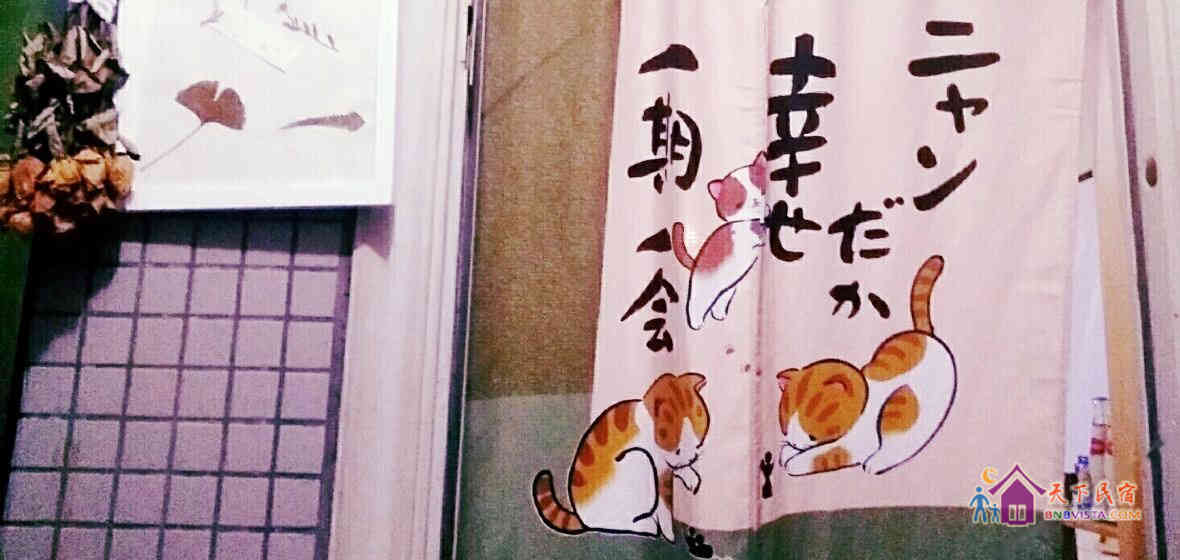 ニャン
だか
幸せ
一期一会
天下民宿
BNBVISTA.COM